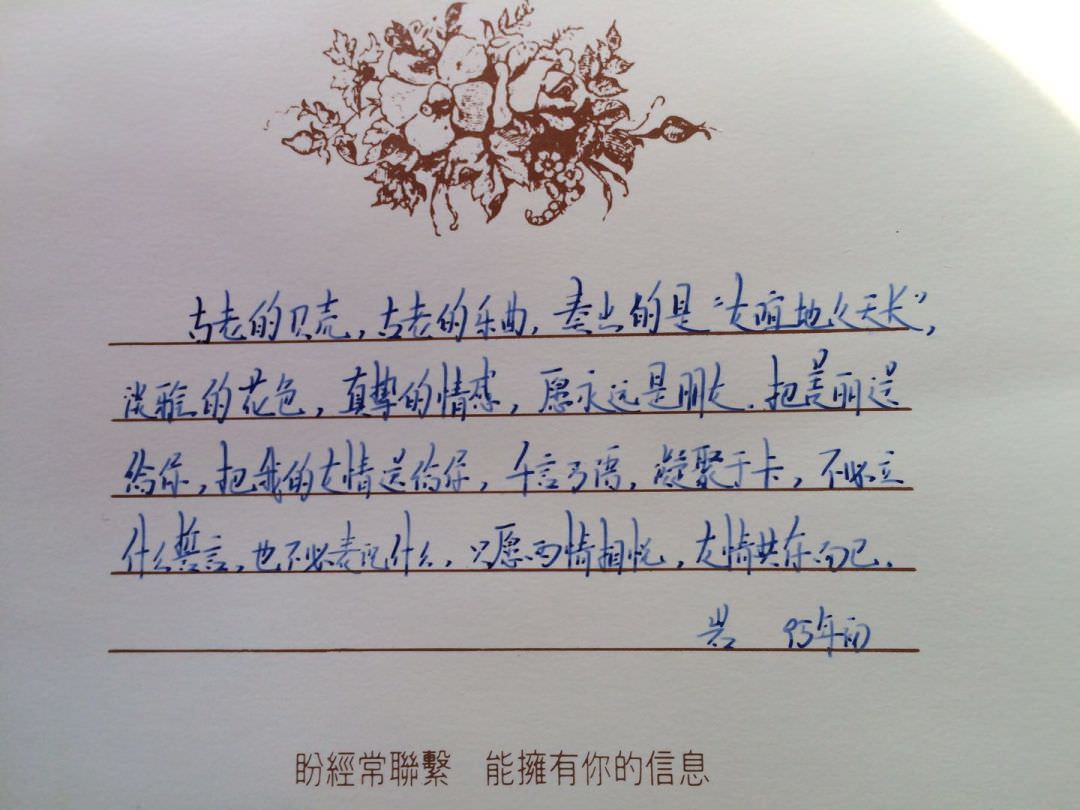 古老的贝壳，古老的乐曲，奏出的是“友谊地久天长”，
淡雅的花色，真挚的情感，愿永远是朋友．把美丽送
给你，把我的友情送给你，千言万语，凝聚于卡，不必立
什么誓言，也不必表白什么，只愿两情相悦，友情共存而已．
95年初
盼經常聯繫　能擁有你的信息